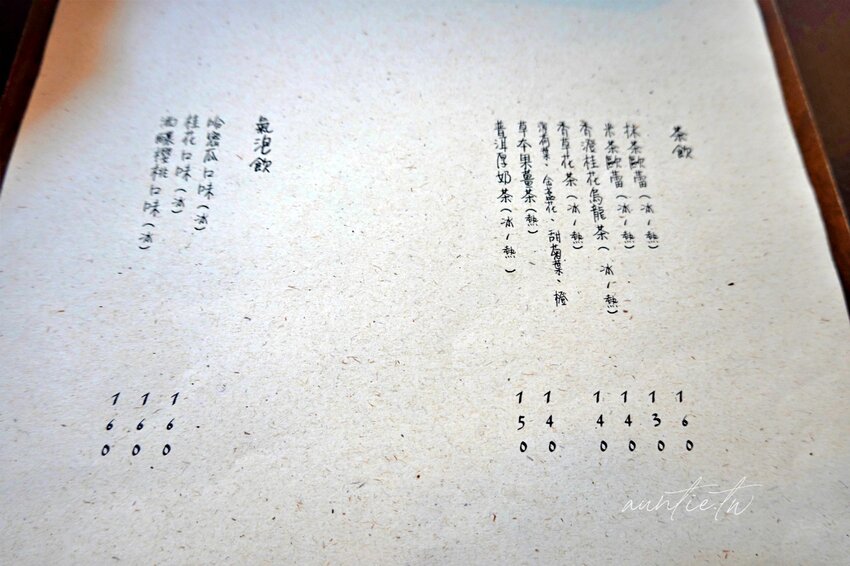 茶飲
抹茶歐蕾(冰/熱)
米茶歐蕾(冰/熱)
香橙桂花烏龍茶(冰/熱)
香草花茶(冰/熱)
薄荷葉、金盞花、甜菊葉、橙
草本果薑茶(熱)
普洱厚奶茶(冰/熱)
160
130
140
140
140
150
氣泡飲
哈密瓜口味(冰)
桂花口味(冰)
酒釀櫻桃口味(冰)
160
160
160
auntie.tw